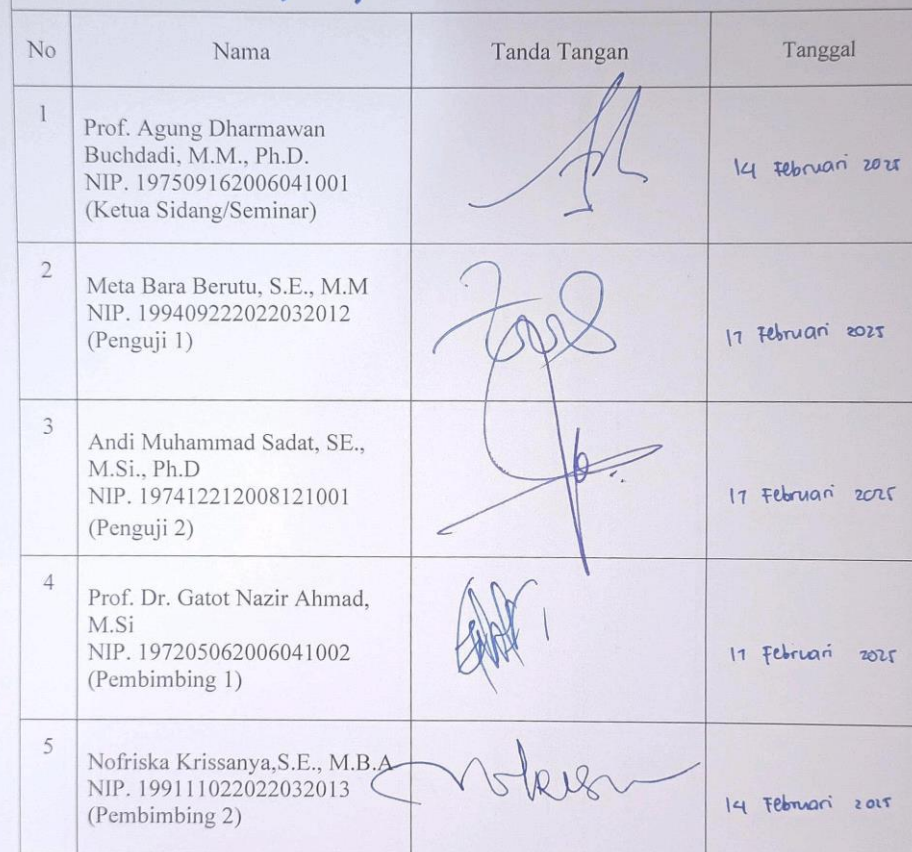 No Nama Tanda Tangan Tanggal
1
Prof. Agung Dharmawan
Buchdadi, M.M., Ph.D.
NIP. 197509162006041001
(Ketua Sidang/Seminar)
14 Februari 2025
2
Meta Bara Berutu, S.E., M.M
NIP. 199409222022032012
(Penguji 1)
17 Februari 2025
3
Andi Muhammad Sadat, SE.,
M.Si., Ph.D
NIP. 197412212008121001
(Penguji 2)
17 Februari 2025
4
Prof. Dr. Gatot Nazir Ahmad,
M.Si
NIP. 197205062006041002
(Pembimbing 1)
17 Februari 2025
5
Nofriska Krissanya,S.E., M.B.A
NIP. 199111022022032013
(Pembimbing 2)
14 Februari 2025